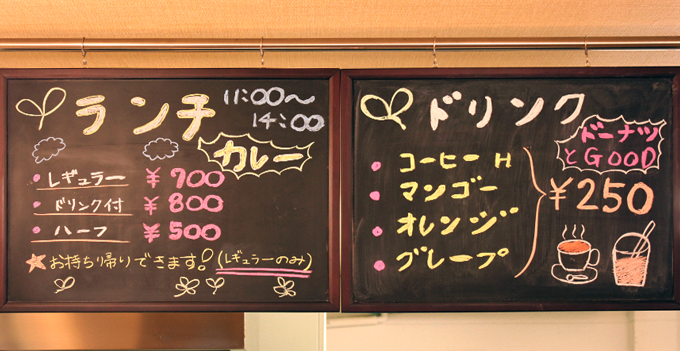 ランチ 11:00〜
14:00
カレー
レギュラー ¥700
ドリンク付 ¥800
ハーフ ¥500
お持ち帰りできます! (レギュラーのみ)
ドリンク
ドーナツ
とGOOD
コーヒー H
マンゴー
オレンジ
グレープ
¥250